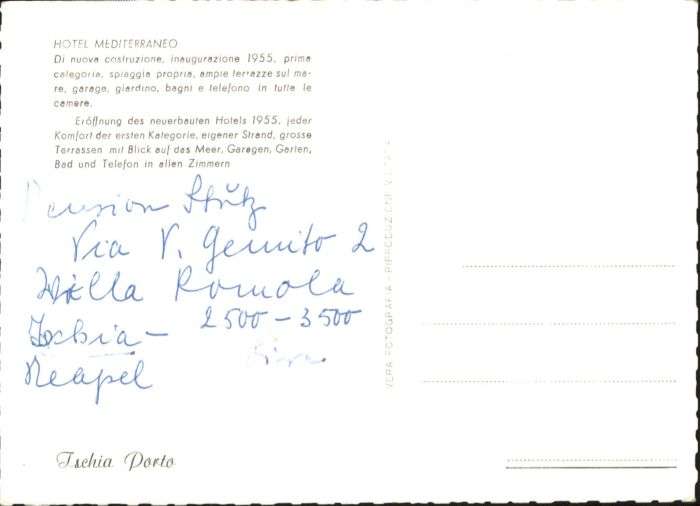 HOTEL MEDITERRANEO
Di nuova costruzione, inaugurazione 1955, prima
categoria, spiaggia propria, ampie terrazze sul ma-
re, garage, giardino, bagni e telefono in tutte le
camere.
Eröffnung des neuerbauten Hotels 1955, jeder
Komfort der ersten Kategorie, eigener Strand, grosse
Terrassen mit Blick auf das Meer, Garagen, Garten,
Bad und Telefon in allen Zimmern
Pension Stütz
Via V. Gemito 2
Villa Romola
Ischia - 2500 - 3500
Neapel
Ischia Porto
VERA FOTOGRAFIA - RIPRODUZIONE VIETATA